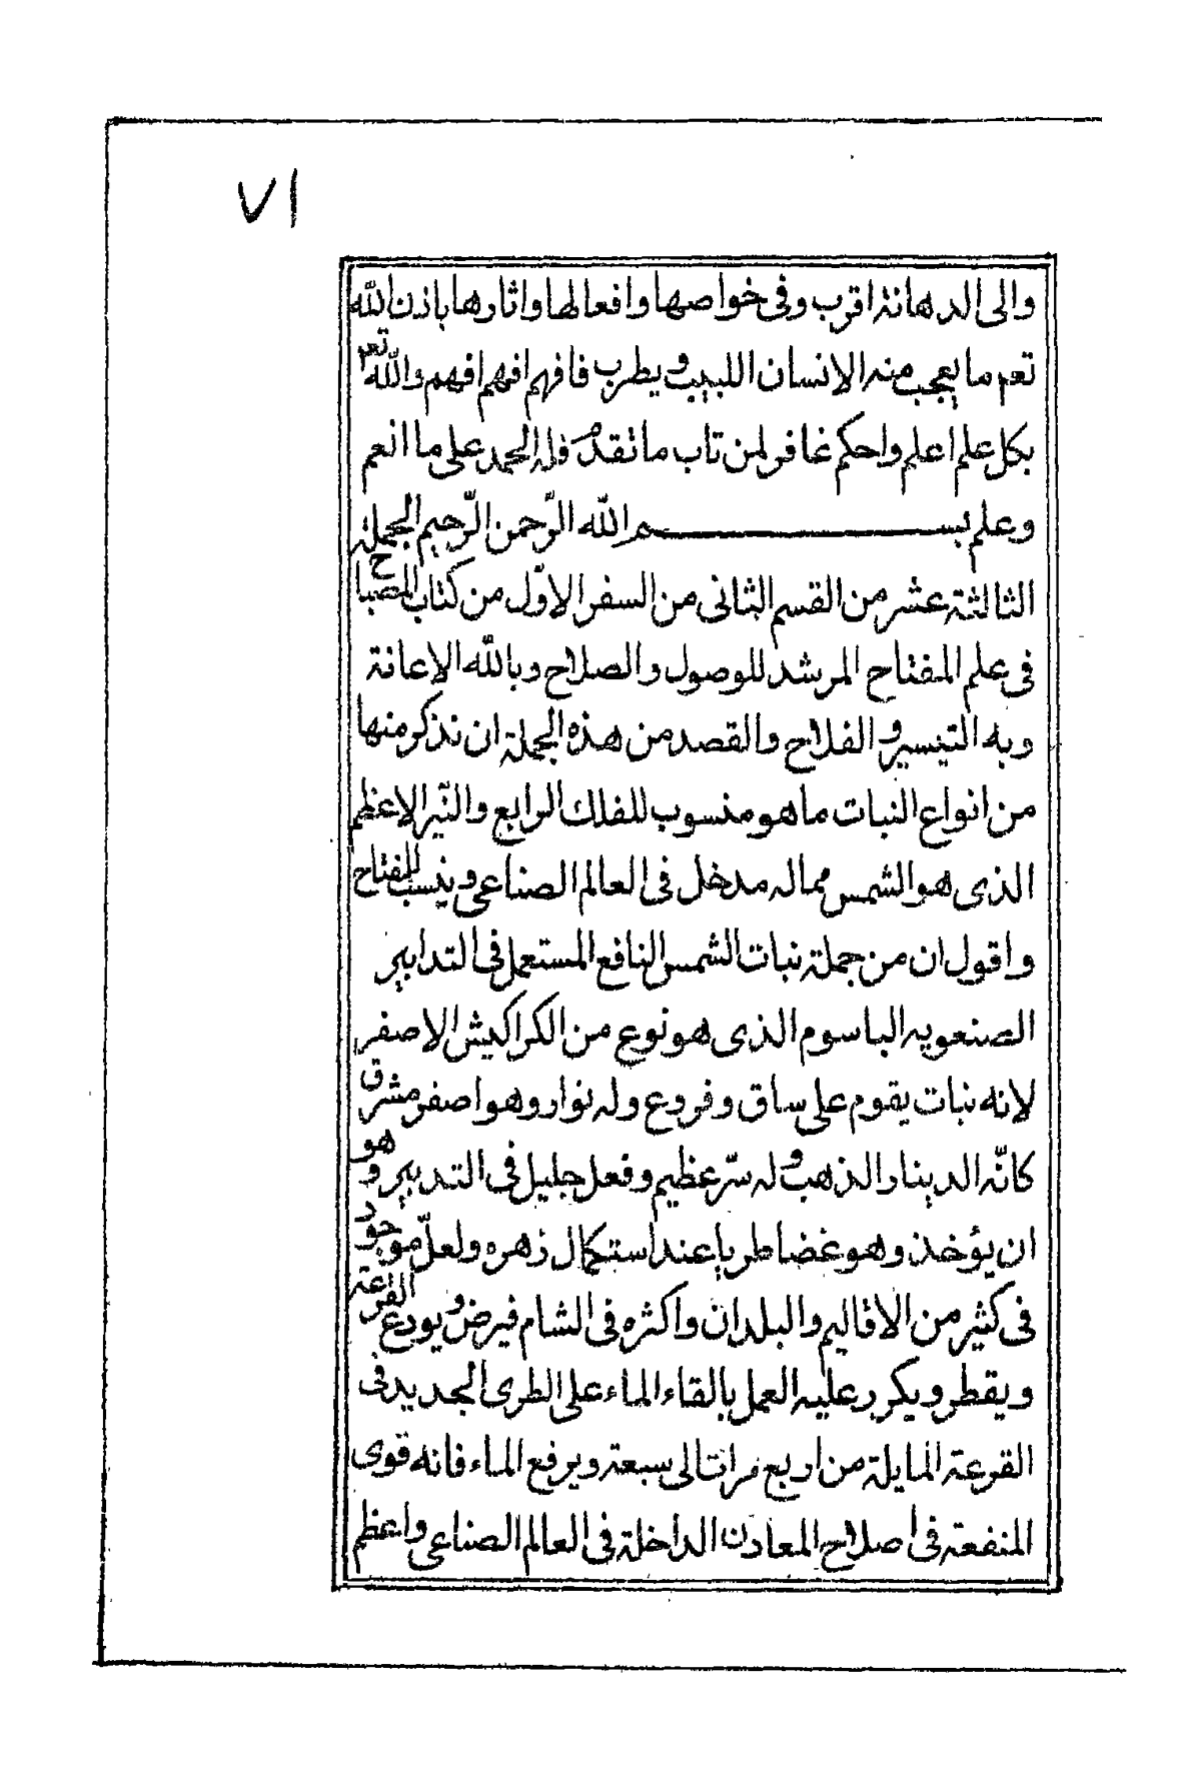 ٧١
والى الدهانة اقرب وفى خواصها وافعالها واثارها باذن الله
تعم ما يعجب منه الانسان اللبيب ويطرب فافهم افهم افهم والله تعم
بكل علم اعلم واحكم غافر لمن تاب ما تقدم فله الحمد على ما انعم
وعلم بسم الله الرّحمن الرّحيم الجملة
الثالثة عشر من القسم الثانى من السفر الاوّل من كتاب المصباح
فى علم المفتاح المرشد للوصول والصلاح وبالله الاعانة
وبه التيسير والفلاح والقصد من هذه الجملة ان نذكر منها
من انواع النبات ما هو منسوب للفلك الرابع والنّير الاعظم
الذى هو الشمس مما له مدخل فى العالم الصناعى وينسب للمفتاح
واقول ان من جملة نبات الشمس النافع المستعمل فى التدابير
الصنعويه الباسوم الذى هو نوع من الكراكيش الاصفر
لانه نبات يقوم على ساق وفروع وله نوار وهو اصفر مشرق
كانّه الدينار الذهب وله سرّ عظيم وفعل جليل فى التدبير وهو
ان يؤخذ وهو غضا طريا عند استكمال زهره ولعلّ موجود
فى كثير من الاقاليم والبلدان واكثره فى الشام فيرض ويودع القرعة
ويقطر ويكرر عليه العمل بالقاء الماء على الطرى الجديد فى
القرعة المايلة من اربع مرات الى سبعة ويرفع الماء فانه قوى
المنفعة فى اصلاح المعادن الداخلة فى العالم الصناعى واعظم